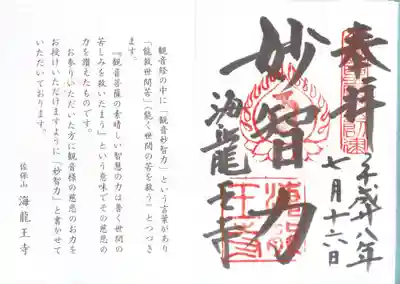 奉拝
平成廿八年
七月十六日
妙智力
海龍王寺
海龍
王寺
観音経の中に「観音妙智力」という言葉があり
「能救世間苦」(能く世間の苦を救う)とつづき
ます。
『観音菩薩の素晴しい智慧の力は普く世間の
苦しみを救いたまう』という意味でその慈悲の
力を讃えたものです。
お参りいただいた方に観音様の慈悲のお力を
お授けいただけますように「妙智力」と書かせて
いただいております。
佐保山 海龍王寺